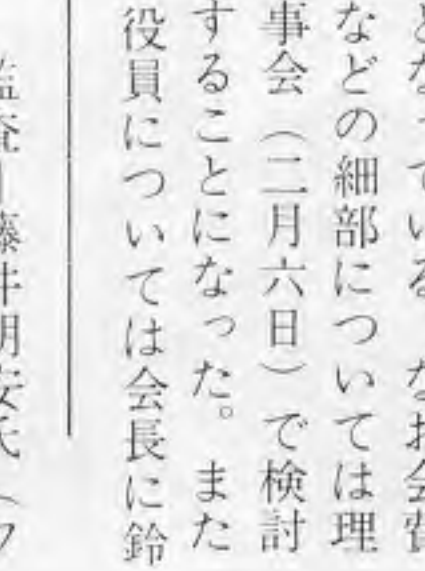 となっている。なお会費
などの細部については理
事会（二月六日）で検討
することになった。また
役員については会長に鈴
監査＝藤井明安氏（フ